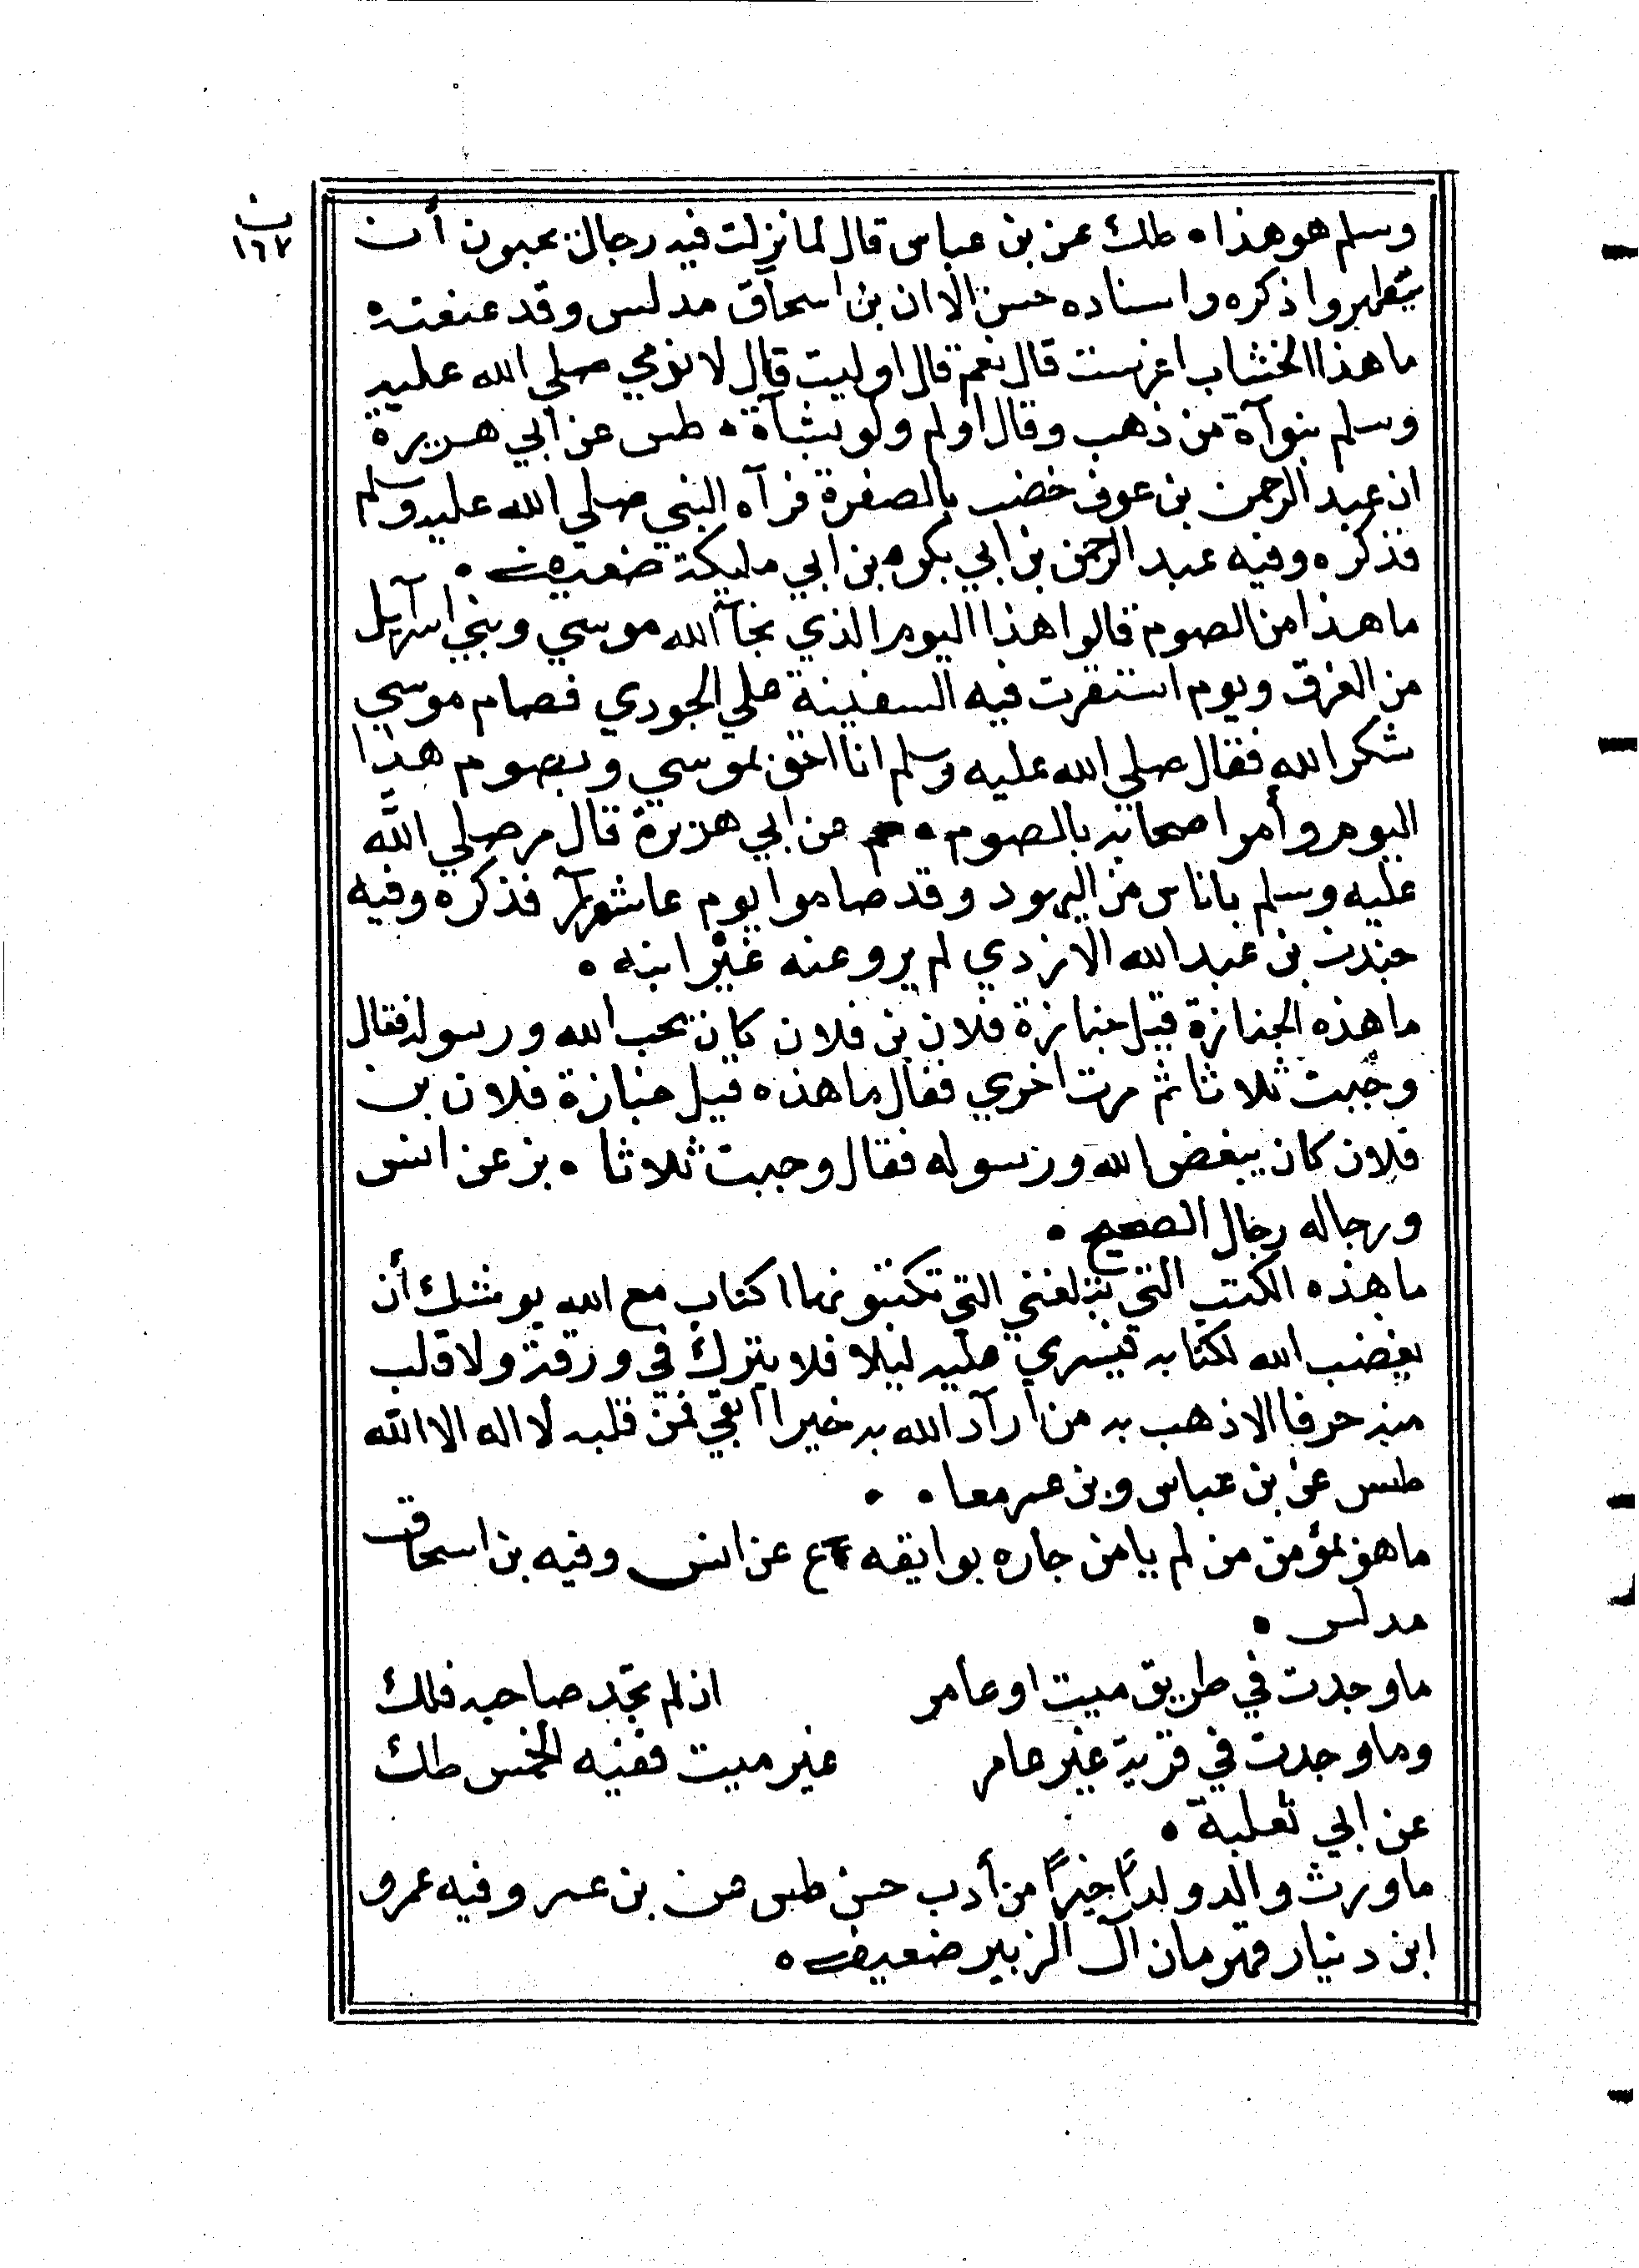 ن
١٦٧
وسلم هو هذا ه طك عن بن عباس قال لما نزلت فيه رجال يحبون أن
يتطهروا ذكره واسناده حسن الا ان بن اسحاق مدلس وقد عنعنه ه
ما هذا الخضاب اعرست قال نعم قال اولمت قال لا فرمي صلي الله عليه
وسلم بنوآة من ذهب وقال اولم ولو بشآة ه طس عن ابي هريرة
ان عبد الرحمن بن عوف خضب بالصفرة فرآه النبي صلي الله عليه وسلم
فذكره وفيه عبد الرحمن بن ابي بكر بن ابي مليكة ضعيف ه
ما هذا من الصوم قالوا هذا اليوم الذي نجآ الله موسي وبني اسرآيل
من الغرق ويوم استقرت فيه السفينة علي الجودي فصام موسي
شكر الله فقال صلي الله عليه وسلم انا احق بموسي وبصوم هذا
اليوم وأمر اصحابه بالصوم ه حم عن ابي هريرة قال مر صلي الله
عليه وسلم باناس من اليهود وقد صاموا يوم عاشورآ فذكره وفيه
حبيب بن عبد الله الازدي لم يرو عنه غير ابنه ه
ما هذه الجنازة قيل جنازة فلان بن فلان كان يحب الله ورسوله فقال
وجبت ثلاثا ثم مرت اخري فقال ما هذه قيل جنازة فلان بن
فلان كان يبغض الله ورسوله فقال وجبت ثلاثا ه بز عن انس
ورجاله رجال الصحيح ه
ما هذه الكتب التي يبلغني التي تكتبونها اكتاب مع الله يوشك أن
يغضب الله لكتابه فيسري عليه ليلا فلا يترك في ورقة ولا قلب
منه حرفا الا ذهب به من أرآد الله به خيرا أبقي في قلبه لا اله الا الله
طس عن بن عباس وبن عمر معا ه ه
ما هو بمؤمن من لم يامن جاره بوايقه ع عن انس وفيه بن اسحاق
مدلس ه
ما وجدت في طريق ميت او عامر ان لم تجد صاحبه فلك
وما وجدت في قرية غير عامر غير ميت ففيه الخمس طك
عن ابي ثعلبة ه
ما ورث والد ولداً خيراً من أدب حسن طس عن بن عمر وفيه عمرو
ابن دينار قهرمان آل الزبير ضعيف ه